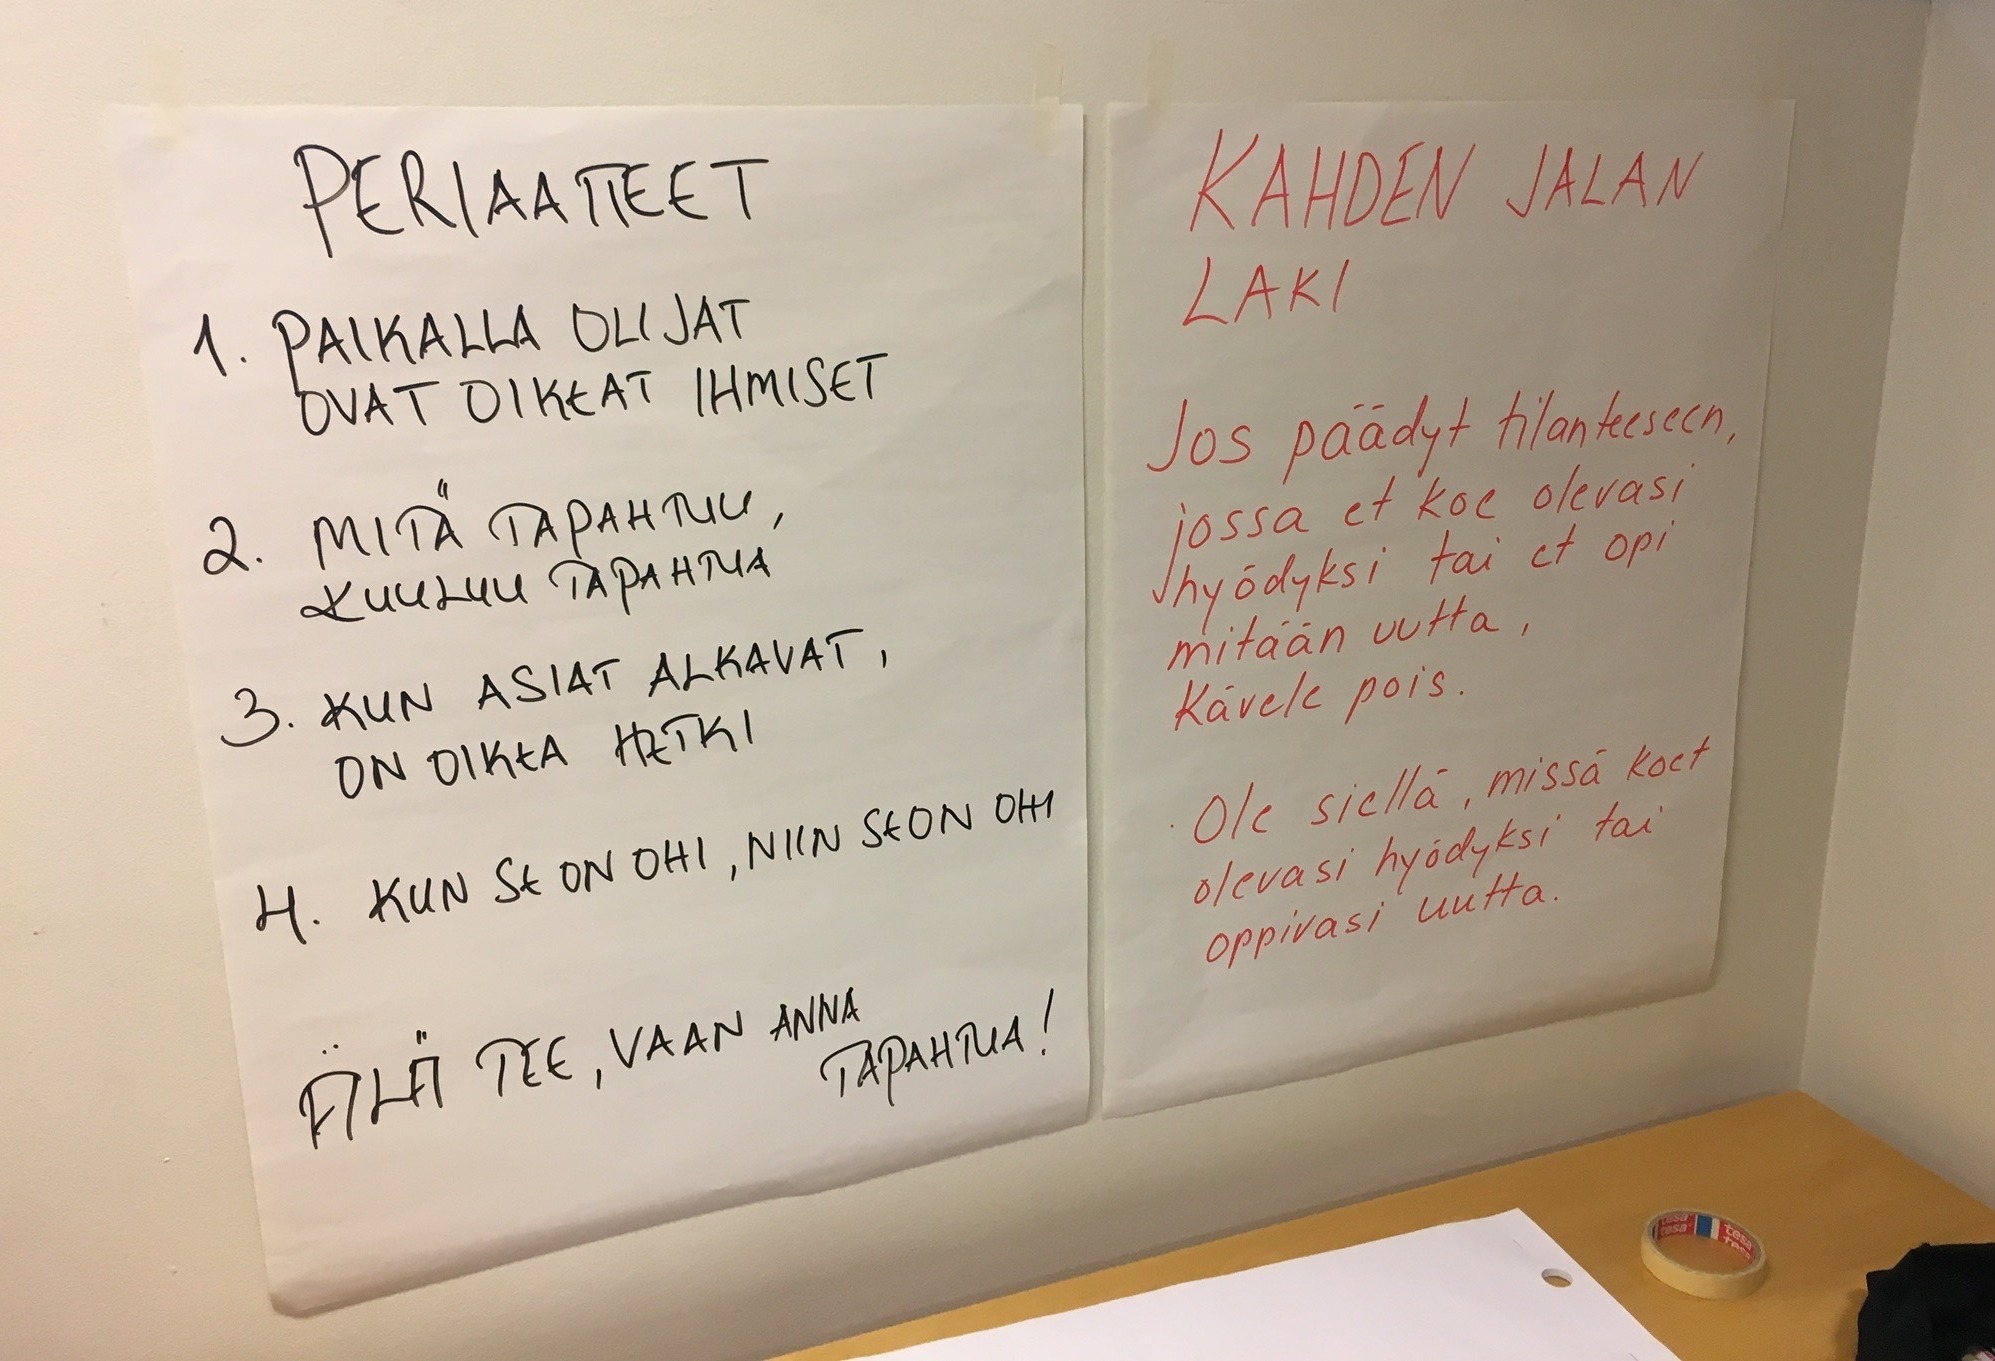 PERIAATTEET
1. PAIKALLA OLIJAT
OVAT OIKEAT IHMISET
2. MITÄ TAPAHTUU,
KUULUU TAPAHTUA
3. KUN ASIAT ALKAVAT,
ON OIKEA HETKI
4. KUN SE ON OHI, NIIN SE ON OHI
ÄLÄ TEE, VAAN ANNA
TAPAHTUA!
KAHDEN JALAN
LAKI
Jos päädyt tilanteeseen,
jossa et koe olevasi
hyödyksi tai et opi
mitään uutta,
kävele pois.
Ole siellä, missä koet
olevasi hyödyksi tai
oppivasi uutta.
tesa tesa
tesa tesa